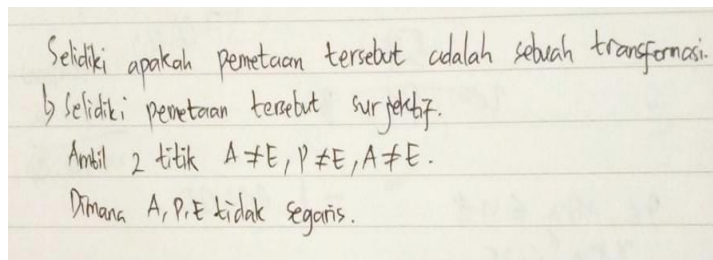 Selidiki apakah pemetaan tersebut adalah sebuah transformasi.
↳ Selidiki pemetaan tersebut surjektif.
Ambil 2 titik A ≠ E, P ≠ E, A ≠ E.
Dimana A, P, E tidak segaris.